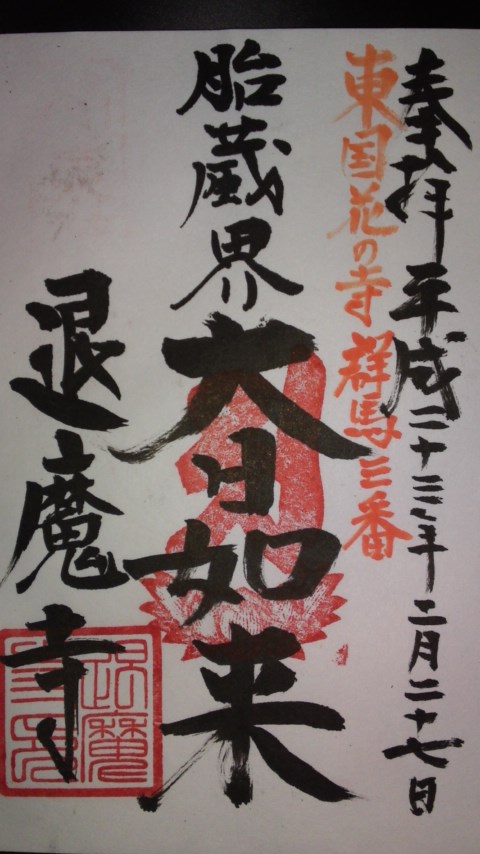 奉拝 平成二十三年二月二十七日
東国花の寺 群馬三番
胎蔵界
大日如来
退魔寺